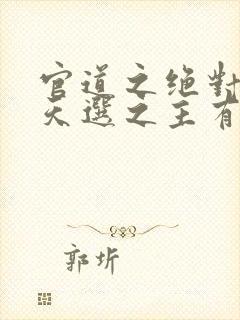 官道之绝對
天選之主有
郭圻